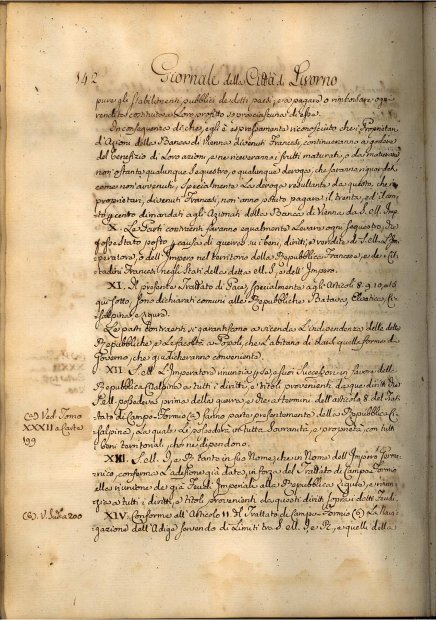 142 Giornale della Città di Livorno
pure gli stabilimenti pubblici de detti paesi, e a pagare o rimborsare ogni
rendita costituita a Loro profitto
In conseguenza di che, egli è espressamente riconosciuto che i Proprietari
d'Azioni della Banca di Vienna divenuti Francesi, continueranno a godere
del benefizio di Loro azioni, e ne riceveranno i frutti maturati, o da maturare
non ostante qualunque sequestro, o qualunque deroga, che saranno riguardati,
come non avvenuti, specialmente La deroga resultante da quello, che i
proprietari, divenuti Francesi, non anno potuto pagare il trenta, ed il cen-
to p cento dimandati agli Azionari della Banca di Vienna da S. M. Imp.
X. Le Parti contraenti faranno egualmente Levare ogni sequestro, che
fosse stato posto a causa di guerra su i beni, diritti, e rendite di S. M. L'Im-
peratore, o dell'Impero nel territorio della Repubblica Francese, e de Cit-
tadini Francesi negli Stati della detta M. S. e dell'Impero.
XI. Il presente Trattato di Pace, specialmente agli Articoli 8. 9. 10. e 15
qui sotto, sono dichiarati comuni alle Repubbliche Batava, Elvetica, Ci-
salpina, e Ligure.
Le parti contraenti si garantiscono a vicenda L'indipendenza delle dette
Repubbliche e La facoltà a Popoli, che L'abitano di darsi quella forma di
Governo, che giudicheranno conveniente.
XII. S. M. L'Imperatore rinunzia p se, e suoi Successori in favore della
Repubblica Cisalpina a tutti i diritti, e titoli provenienti da que diritti che
S. M. possedeva prima della guerra, e che a termini dell'articolo 8 del Trat-
tato di Campo-Formio (a) fanno parte presentemente della Repubblica Ci-
salpina, La quale Le possederà in tutta Sovranità, e proprietà, con tutti
i beni territoriali, che ne dipendono.
(a) Ved. Tomo
XXXII a Carte
199
XIII. S. M. I. e R. tanto in suo Nome, che in Nome dell'Impero Germa-
nico, conferma L'adesione già data, in forza del Trattato di Campo Formio
alla riunione de già Feudi Imperiali alla Repubblica Ligure, e rinun-
zia a tutti i diritti, e titoli, provenienti da questi diritti sopra i detti Feudi.
XIV. Conforme all'Articolo 11. del Trattato di Campo-Formio (b) La Navi-
gazione dell'Adige servendo di Limiti tra S. M. I. e R. e quelli della
200